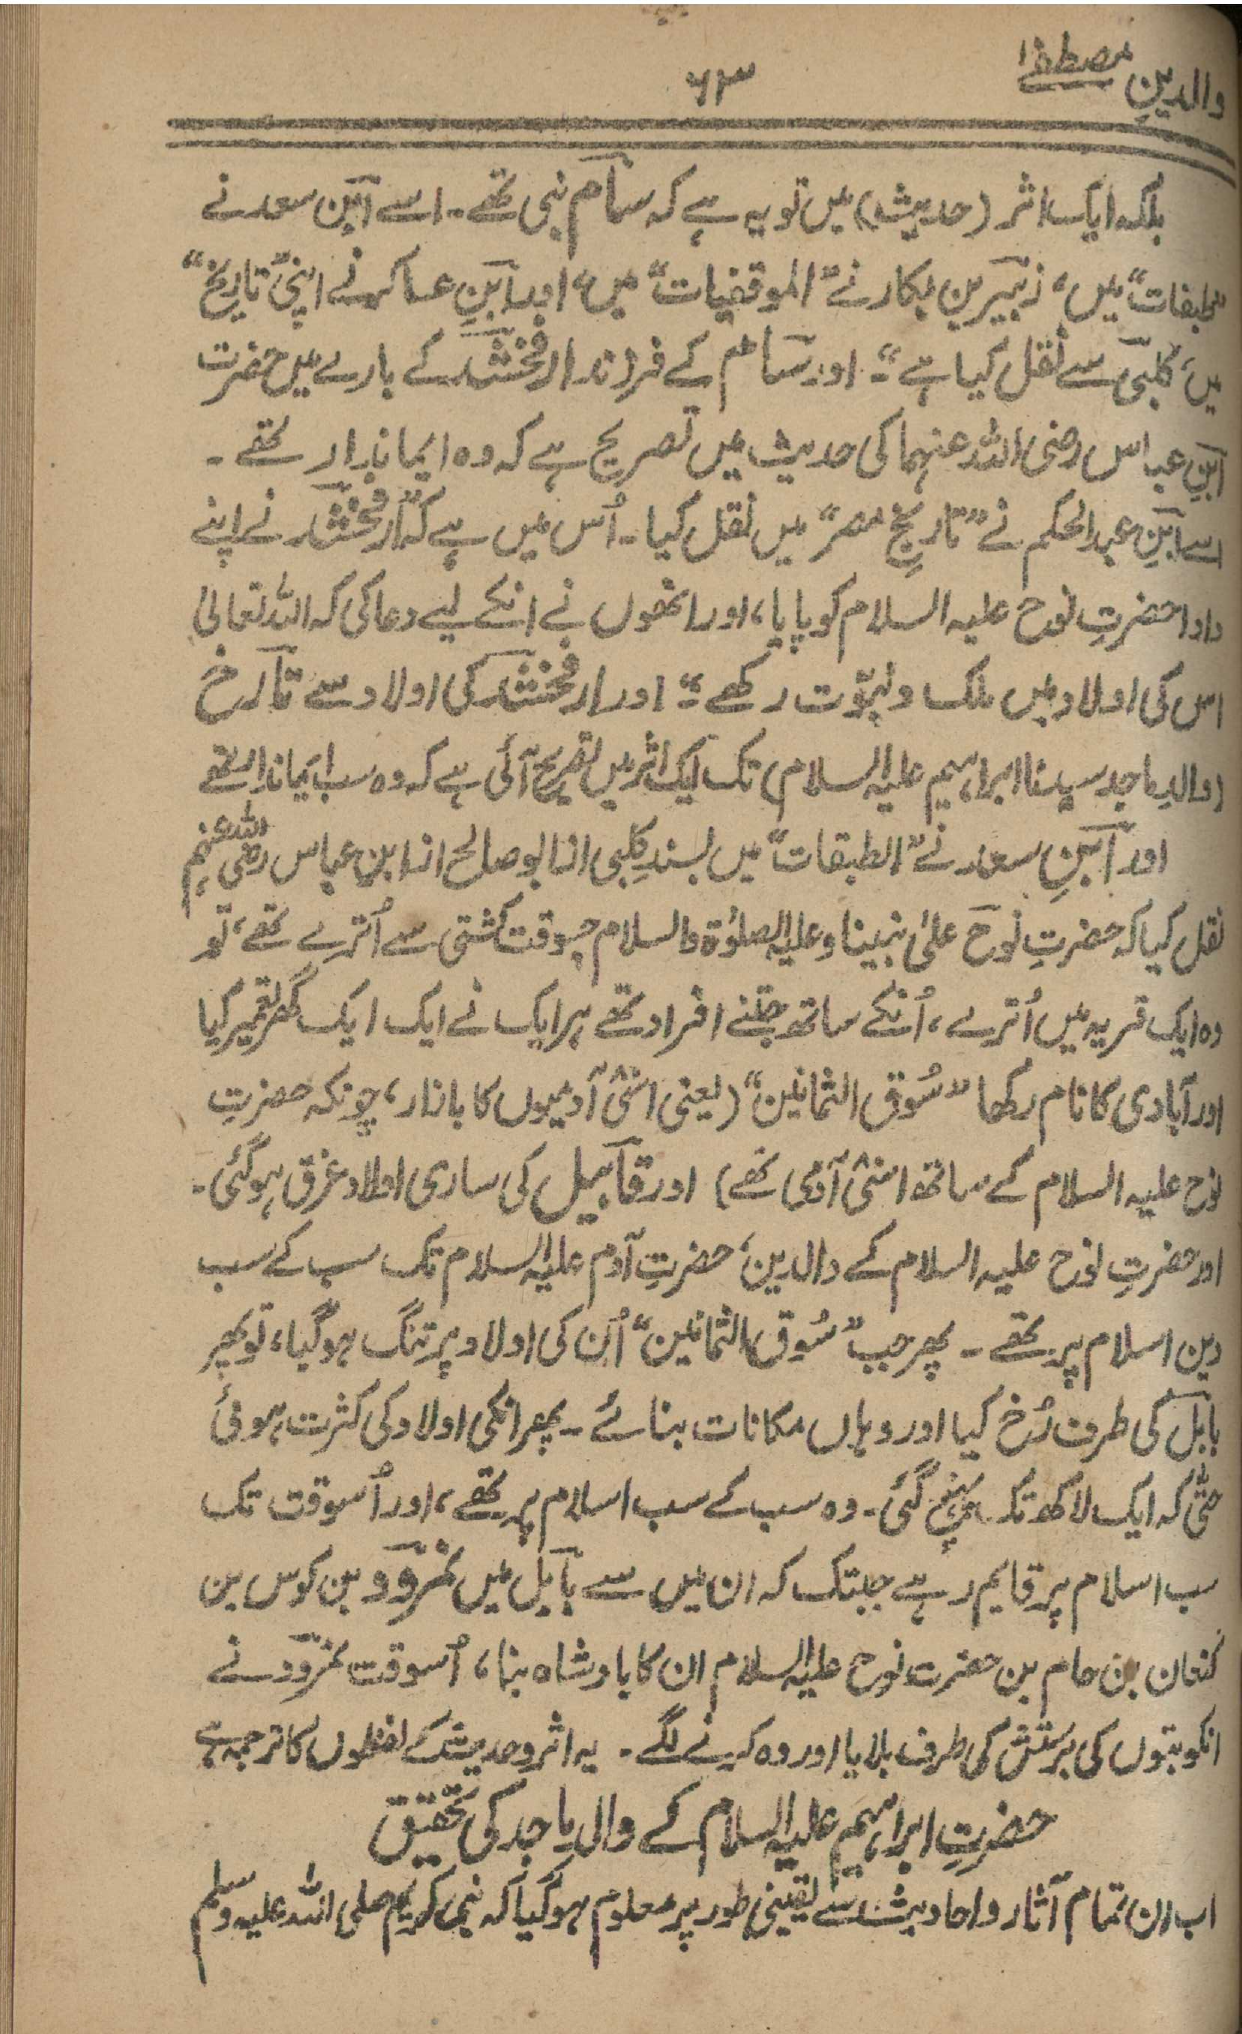 والدینِ مصطفےٰ
۶۳
بلکہ ایک اثر (حدیث) میں تو یہ ہے کہ سام نبی تھے۔ اسے ابن سعد نے
”طبقات“ میں، زبیر بن بکار نے ”الموفقیات“ میں، اور ابنِ عساکر نے اپنی ”تاریخ“
میں، کلبی سے نقل کیا ہے“۔ اور سام کے فرزند ارفخشد کے بارے میں حضرت
ابنِ عباس رضی اللہ عنہما کی حدیث میں تصریح ہے کہ وہ ایماندار تھے۔
اسے ابنِ عبدالحکم نے ”تاریخِ مصر“ میں نقل کیا۔ اُس میں ہے کہ ”ارفخشد نے اپنے
دادا حضرتِ نوح علیہ السلام کو پایا، اور انھوں نے انکے لیے دعا کی کہ اللہ تعالیٰ
اس کی اولاد میں ملک و نبوّت رکھے“۔ اور ارفخشد کی اولاد سے تارخ
(والدِ ماجد سیدنا ابراہیم علیہ السلام) تک ایک اثر میں تصریح آئی ہے کہ وہ سب ایماندار تھے
اور ابنِ سعد نے ”الطبقات“ میں بسندِ کلبی از ابو صالح از ابن عباس رضی اللہ عنہم
نقل کیا کہ حضرتِ نوح علیٰ نبینا وعلیہ الصلوٰۃ والسلام جسوقت کشتی سے اُترے تھے، تو
وہ ایک قریہ میں اُترے، اُنکے ساتھ جتنے افراد تھے ہر ایک نے ایک ایک گھر تعمیر کیا
اور آبادی کا نام رکھا ”سُوق الثمانین“ (یعنی اسّی آدمیوں کا بازار، چونکہ حضرتِ
نوح علیہ السلام کے ساتھ اسّی آدمی تھے) اور قابیل کی ساری اولاد غرق ہوگئی۔
اور حضرتِ نوح علیہ السلام کے والدین، حضرتِ آدم علیہ السلام تک سب کے سب
دین اسلام پر تھے۔ پھر جب ”سُوق الثمانین“ اُن کی اولاد پر تنگ ہوگیا، تو پھر
بابل کی طرف رُخ کیا اور وہاں مکانات بنائے۔ پھر انکی اولاد کی کثرت ہوئی
حتّٰی کہ ایک لاکھ تک پہنچ گئی۔ وہ سب کے سب اسلام پر تھے، اور اُسوقت تک
سب اسلام پر قایم رہے جبتک کہ ان میں سے بابل میں نمرود بن کوس بن
کنعان بن حام بن حضرت نوح علیہ السلام ان کا بادشاہ بنا، اُسوقت نمرود نے
انکو بتوں کی پرستش کی طرف بلایا اور وہ کرنے لگے۔ یہ اثر و حدیث کے لفظوں کا ترجمہ ہے
حضرتِ ابراہیم علیہ السلام کے والد ماجد کی تحقیق
اب ان تمام آثار و احادیث سے یقینی طور پر معلوم ہوگیا کہ نبی کریم صلی اللہ علیہ وسلم